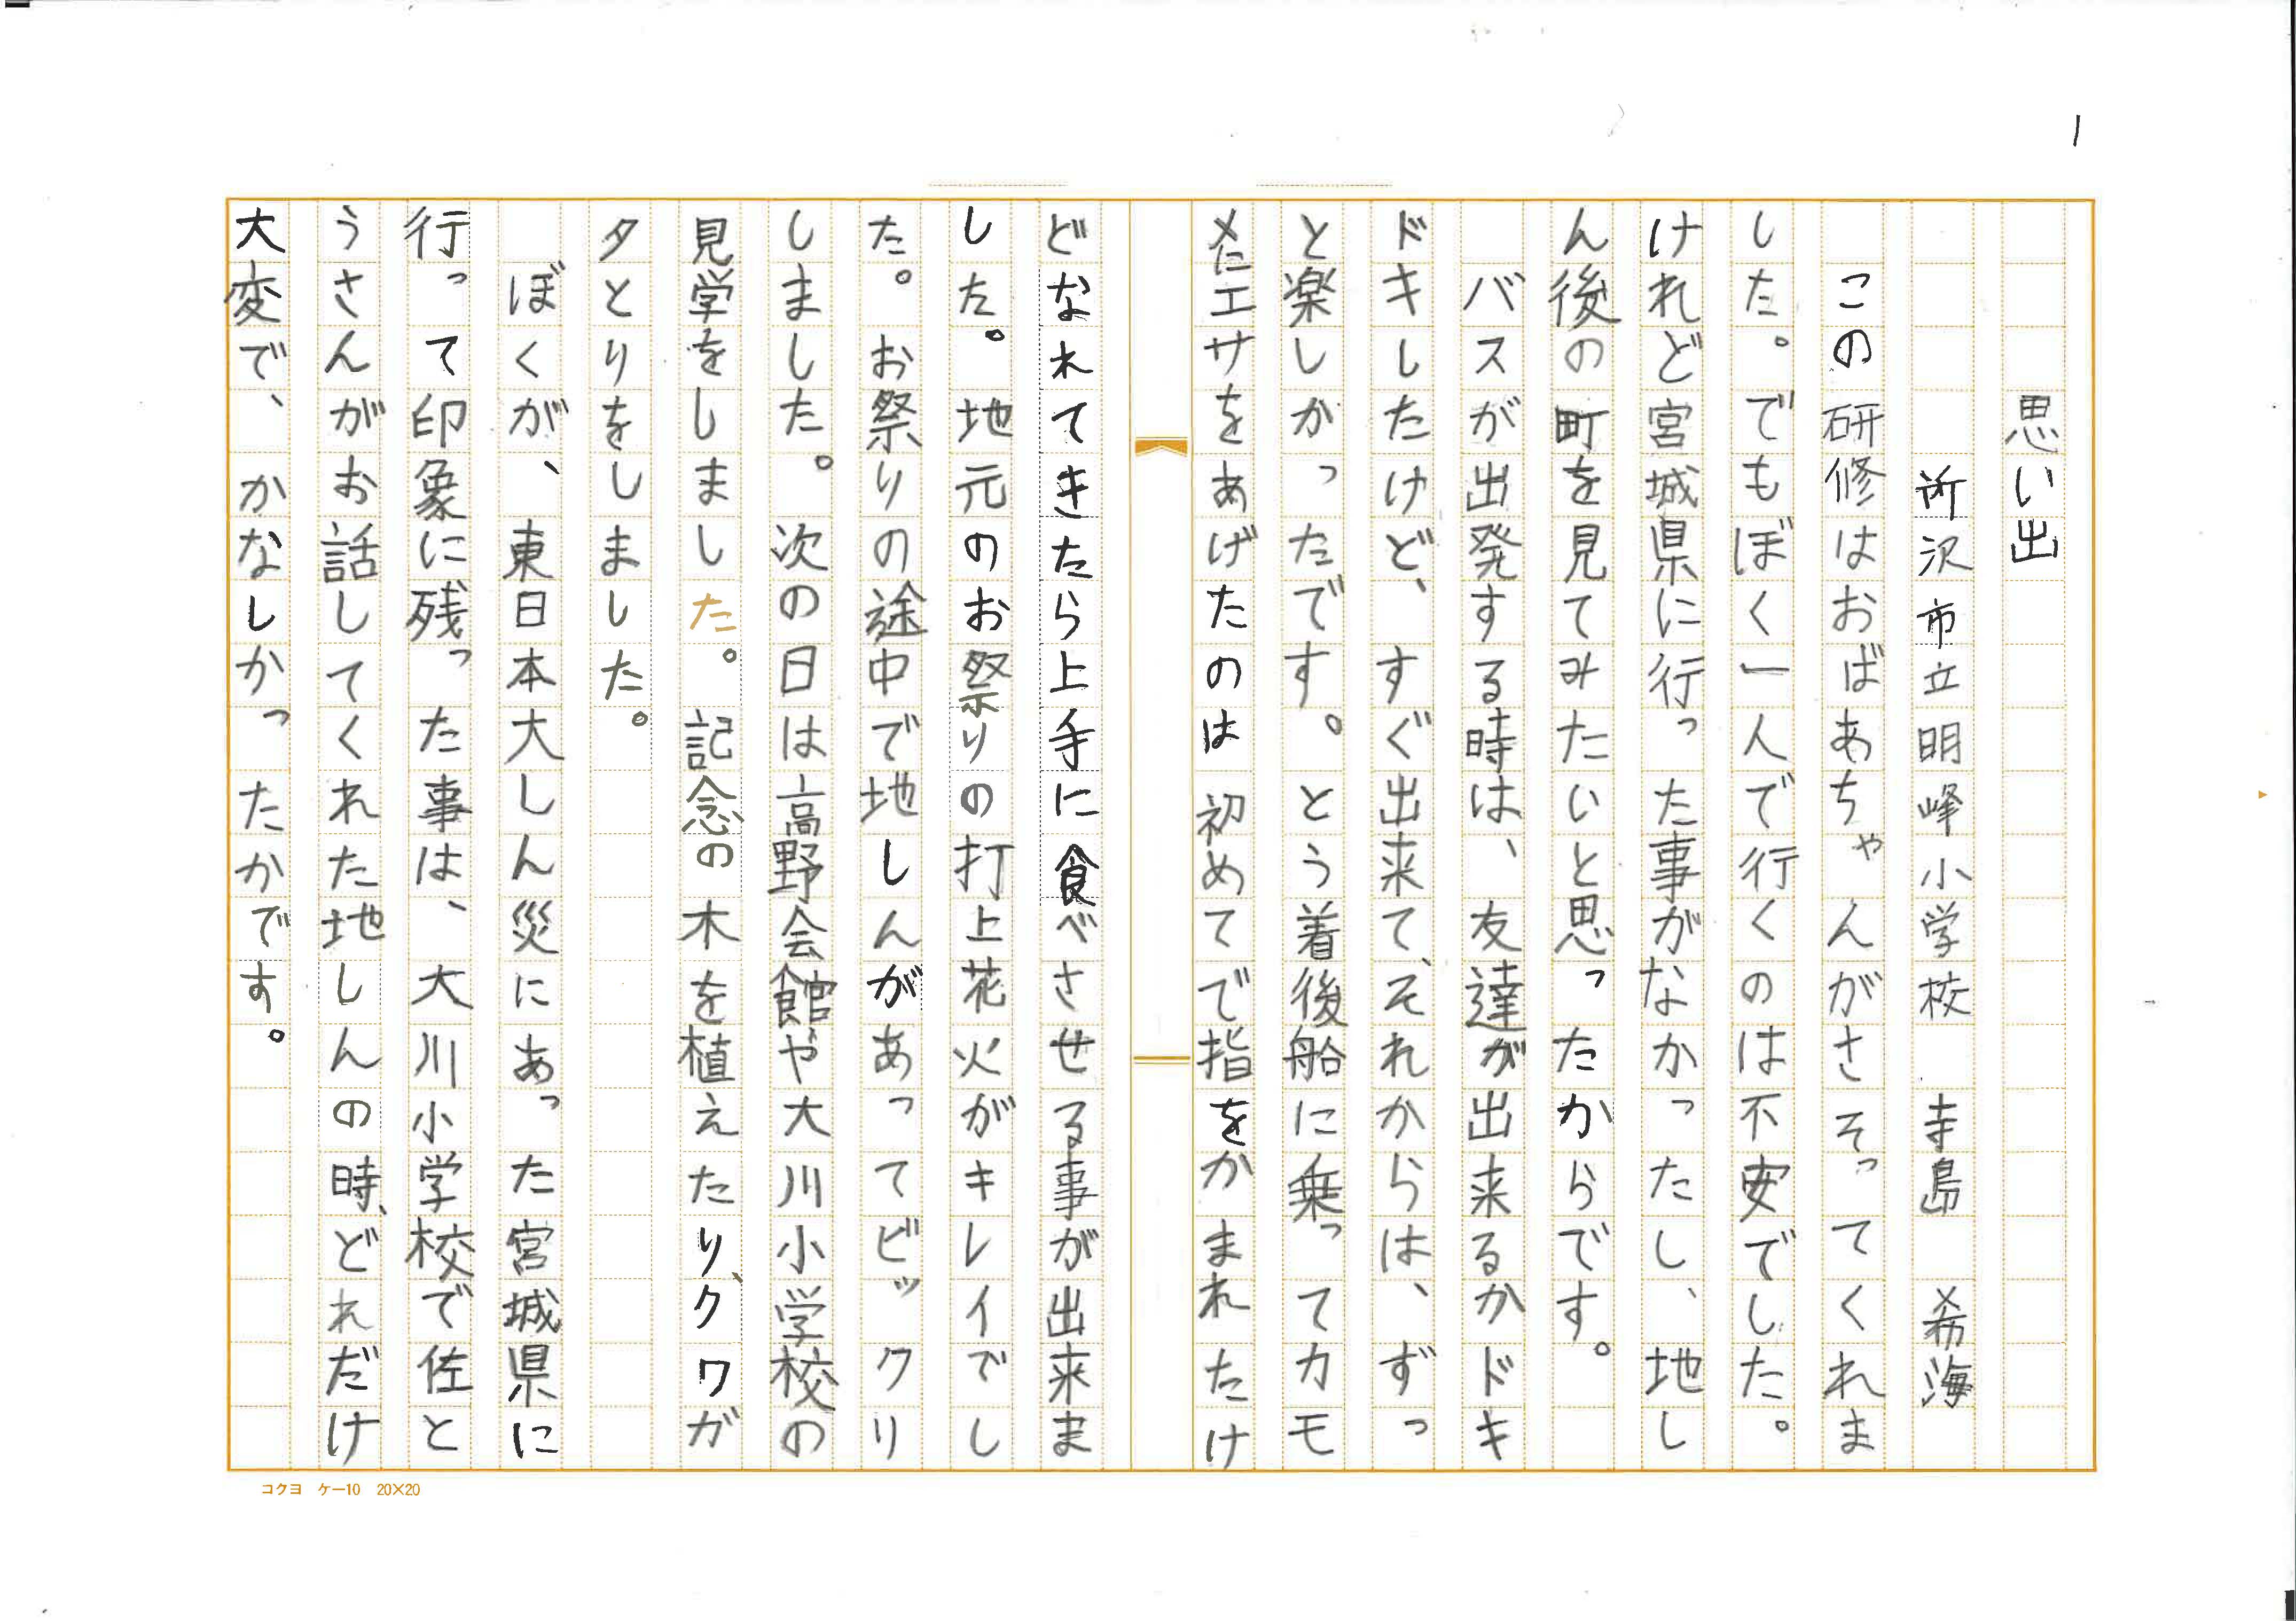 1
思い出
所沢市立明峰小学校 寺島 希海
この研修はおばあちゃんがさそってくれま
した。でもぼく一人で行くのは不安でした。
けれど宮城県に行った事がなかったし、地し
ん後の町を見てみたいと思ったからです。
バスが出発する時は、友達が出来るかドキ
ドキしたけど、すぐ出来て、それからは、ずっ
と楽しかったです。とう着後船に乗ってカモ
メにエサをあげたのは初めてで指をかまれたけ
どなれてきたら上手に食べさせる事が出来ま
した。地元のお祭りの打上花火がキレイでし
た。お祭りの途中で地しんがあってビックリ
しました。次の日は高野会館や大川小学校の
見学をしました。記念の木を植えたり、クワガ
タとりをしました。
ぼくが、東日本大しん災にあった宮城県に
行って印象に残った事は、大川小学校で佐と
うさんがお話してくれた地しんの時、どれだけ
大変で、かなしかったかです。
コクヨ ケー10 20×20